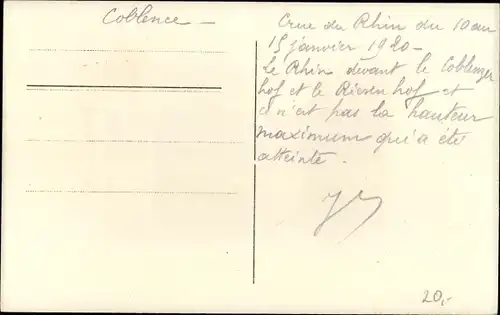 Coblence -
Crue du Rhin du 10 au
15 janvier 1920 -
Le Rhin devant le Coblenzer
hof et le Riesen hof - et
ce n'est pas la hauteur
maximum qui a été
atteinte.
20,-